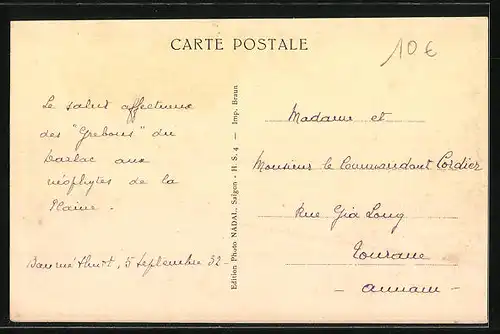 CARTE POSTALE
10€
Le salut affectueux
des "Grebous" du
Darlac aux
néophytes de la
Plaine.
Banmé thuot, 5 Septembre 32
Edition Photo NADAL, Saigon - H S. 4 — Imp. Braun
Madame et
Monsieur le Commandant Cordier
Rue Gia Long
Tourane
- Annam -